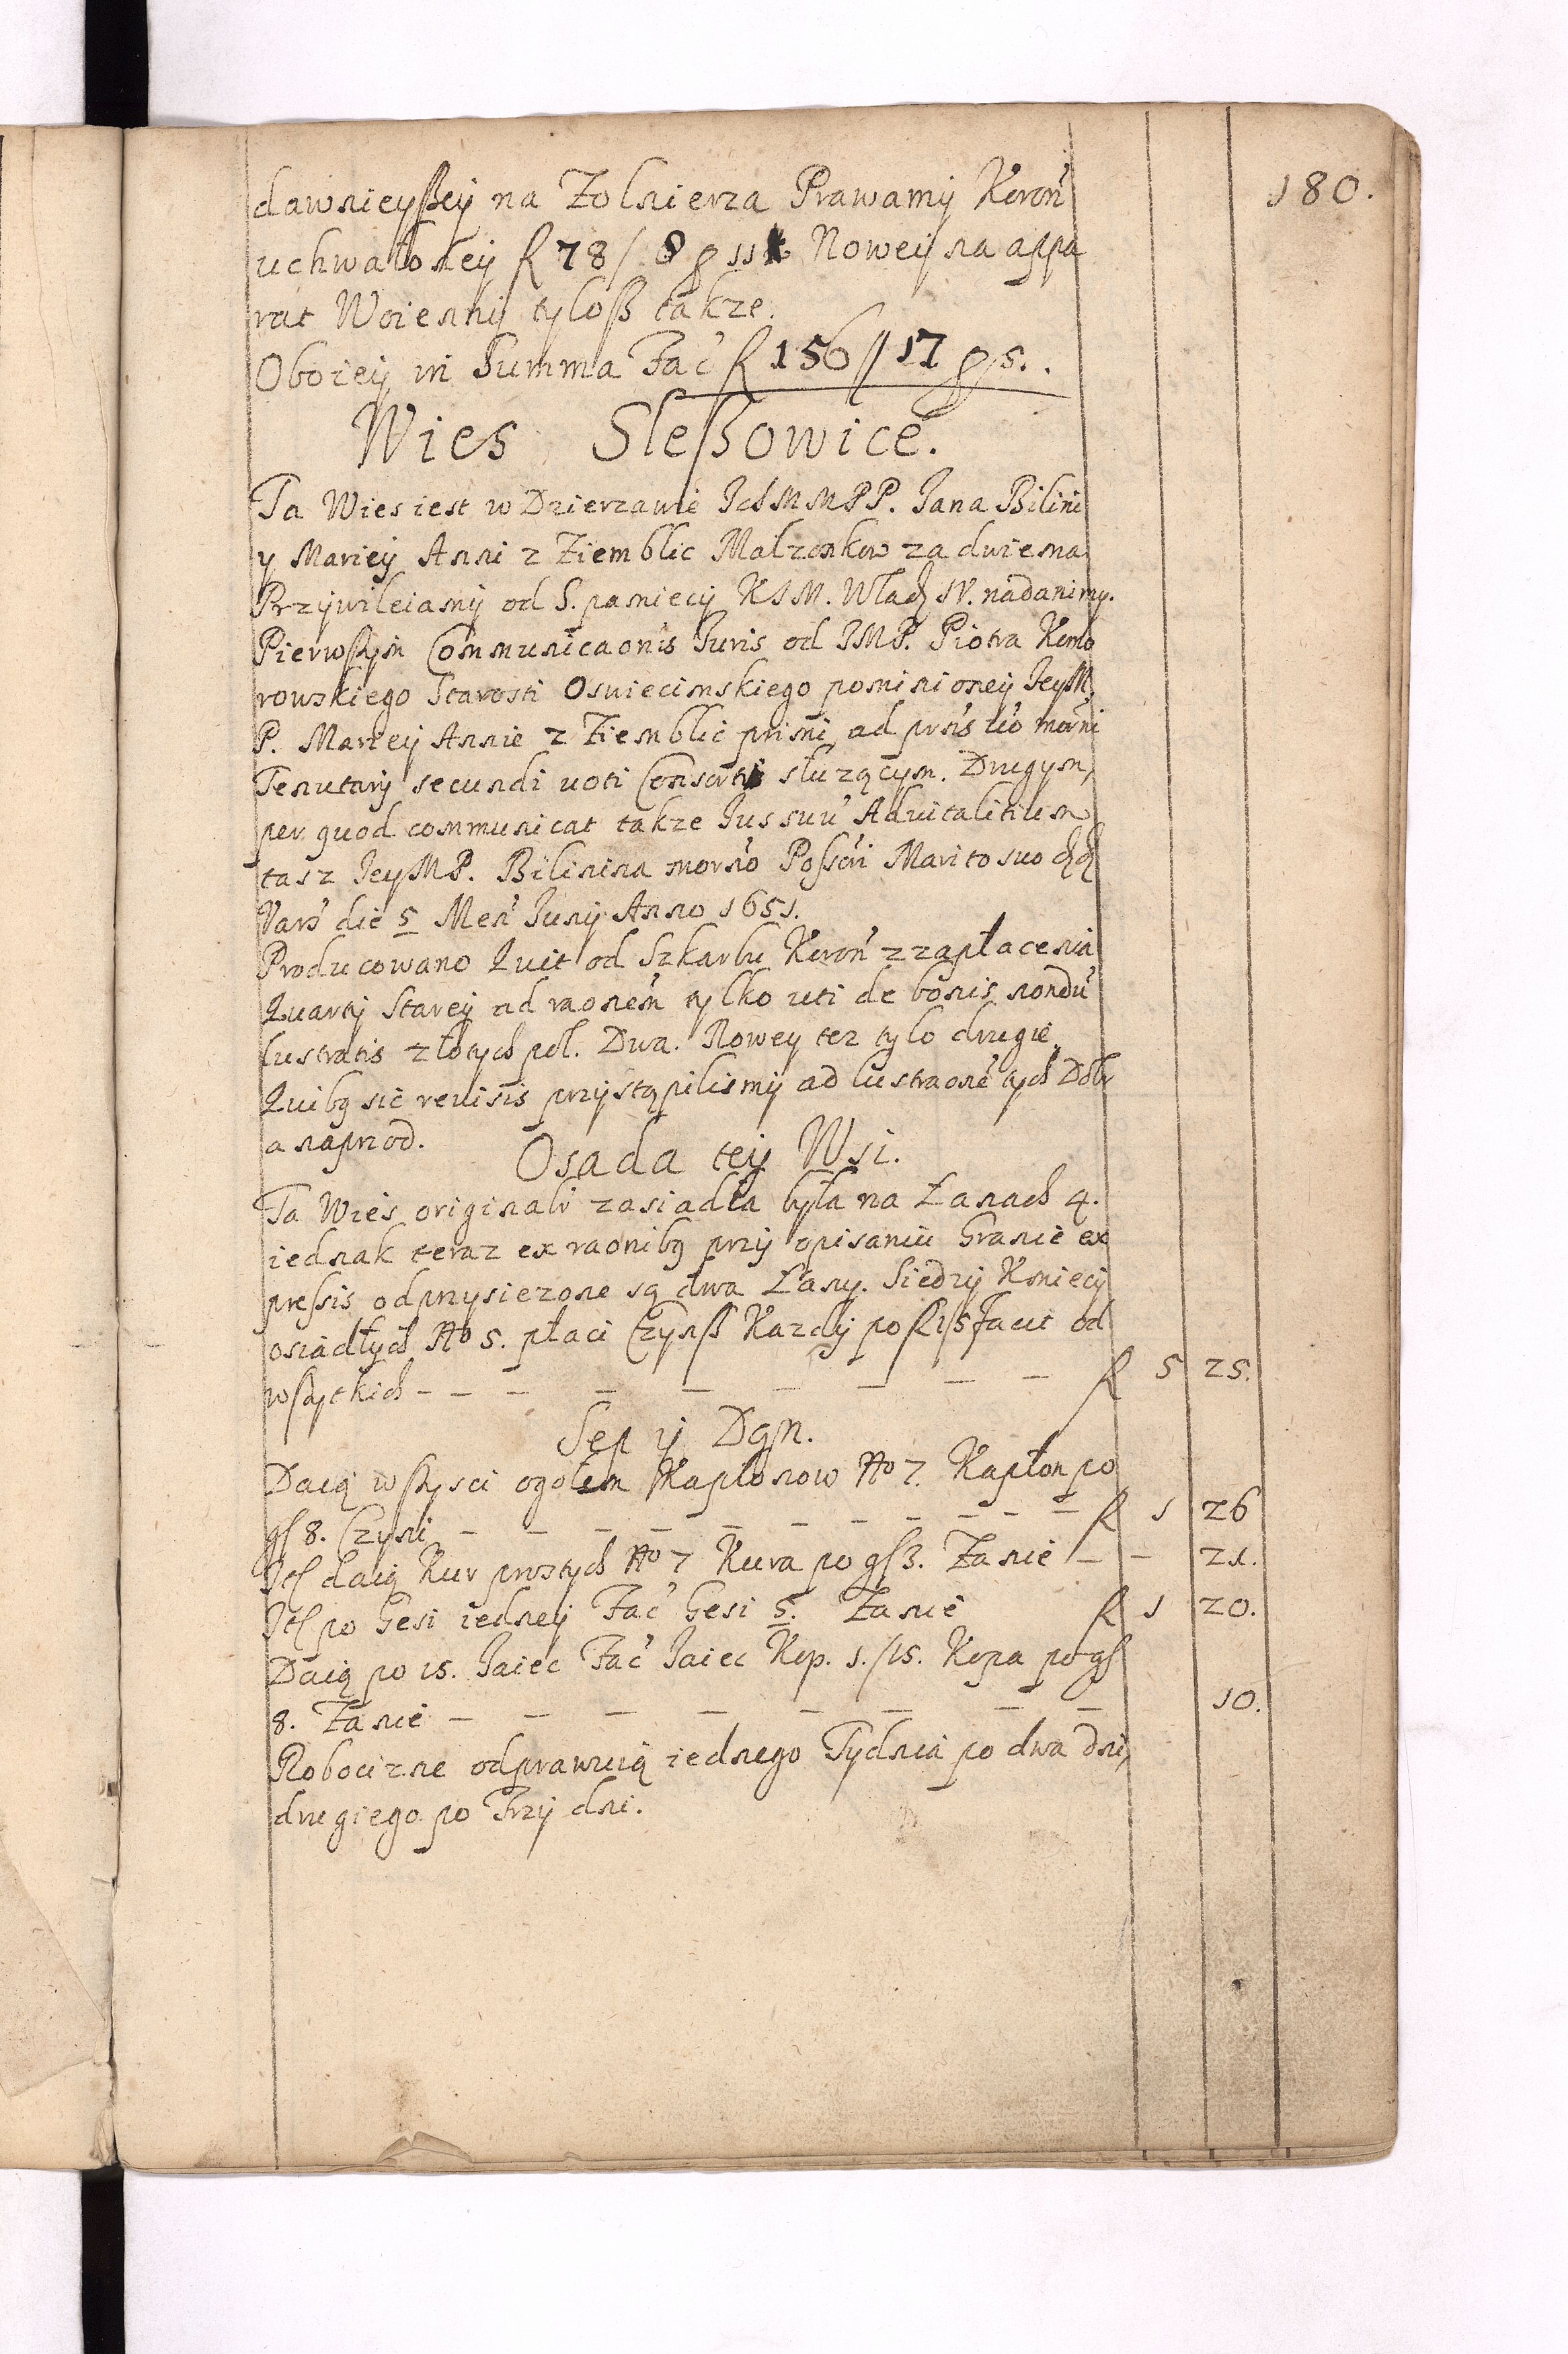 180.
dawnieyßey na Zolnierza Prawamy Koroń
uchwaloney f 78 / 8 g 11 Nowey na appa
rat Woienny tyloß takze.
Oboiey in Summa Fać f 156 // 17 g 5..
Wies Sleßowice.
Ta Wies iest w Dzierzawie IchMMPP. Jana Bilini
y Mariey Anni z Ziemblic Małzonkow za dwiema
Przywileiamy od S. pamiecy KJM. Wład IV. nadanimy.
Pierwßym Communicaonis Iuris od JMP. Piotra Komo
rowskiego Starosti Oswiecimskiego pominioney JeyM
P. Mariey Annie z Ziemblic primi, ad prns uo morni
Tenutary secundi uoti Consorti słuzącym. Drugym,
per quod communicat takze Jus suu Aduitalitium
tasz JeyMP. Bilinina morno Possori Marito suo
Vars die 5 Men Juny Anno 1651.
Producowano Quit od Szkarbu Koroń z zapłacenia
Quarty Starey ad raonem tylko uti de bonis nondu
lustratis złotych pol. Dwa. Nowey tez tylo drugie.
Quibq sic reuisis przystąpilismy ad lustraone tych Dobr
a naprzod.
Osada tey Wsi.
Ta Wies originalr zasiadła była na Łanach 4.
iednak teraz ex raonibq przy opisaniu Granic ex
pressis odprzysiezone są dwa Łany. Siedzy Kmiecy
osiadłych No 5. płaci Czynß Kazdy po f 1/5 facit od
wßytkich - - - - - - - - - f 5 25.
Sep y Dgn.
Daią wßysci ogołem Kapłonow No 7. Kapłon po
gſ 8. Czyni - - - - - - - - - - f 1 26
Itſ daią Kur prostych No 7 Kura po gſ 3. Za nie - - 21.
Itſ po Gesi iedney Fać Gesi 5. Za nie f 1 20.
Daią po 15. Jaiec Fać Jaiec Kop. 1./15. Kopa po gſ
8. Za nie - - - - - - - - - 10.
Robocizne odprawuią iednego Tydnia po dwa dni,
drugiego po Trzy dni.